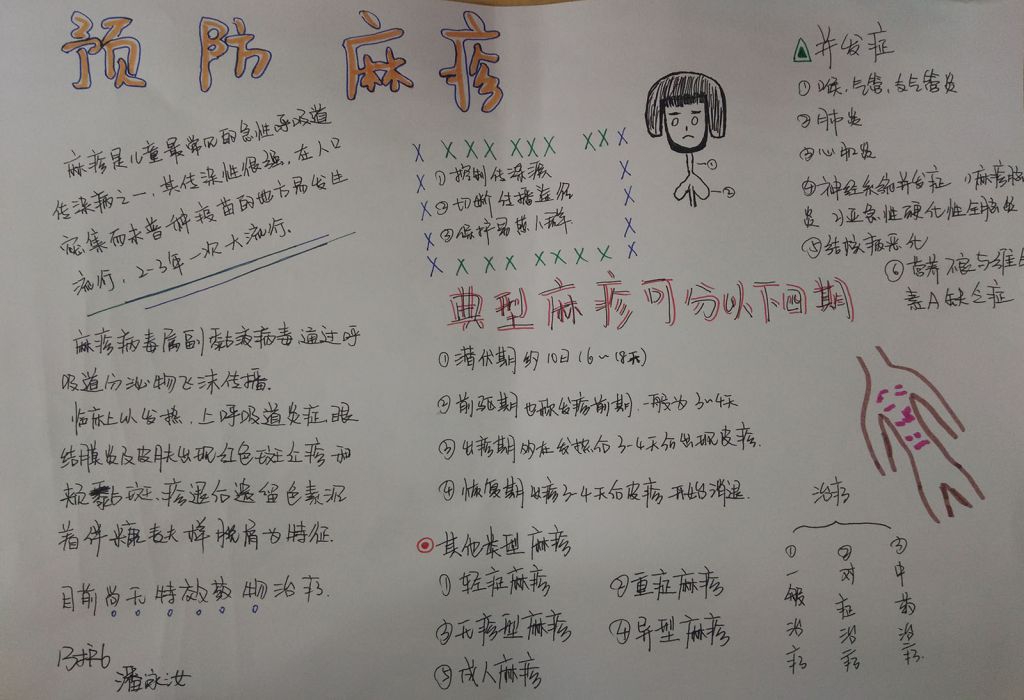 预防麻疹
麻疹是儿童最常见的急性呼吸道
传染病之一，其传染性很强，在人口
密集而未普种疫苗的地方易发生
流行，2-3年一次大流行.
麻疹病毒属副黏液病毒，通过呼
吸道分泌物飞沫传播.
临床上以发热，上呼吸道炎症，眼
结膜炎及皮肤出现红色斑丘疹和
颊黏斑，疹退后遗留色素沉
着伴糠麸样脱屑为特征.
目前尚无特效药物治疗.
潘咏汝
X X X X X X X X X X
①控制传染源
②切断传播途径
③保护易感人群
X X X X X X X X X
①
②
典型麻疹可分以下四期
①潜伏期 约10日(6~18天)
②前驱期 也称发疹前期，一般为3~4天
③出疹期 约在发热后3-4天后出现皮疹.
④恢复期 出疹3~4天后皮疹开始消退.
其他类型麻疹
①轻症麻疹 ②重症麻疹
③无疹型麻疹 ④异型麻疹
⑤成人麻疹
并发症
①喉、气管、支气管炎
②肺炎
③心肌炎
④神经系统并发症 1)麻疹脑
炎 2)亚急性硬化性全脑炎
⑤结核病恶化
⑥营养不良与维生
素A缺乏症
治疗
①一般治疗
②对症治疗
③中药治疗